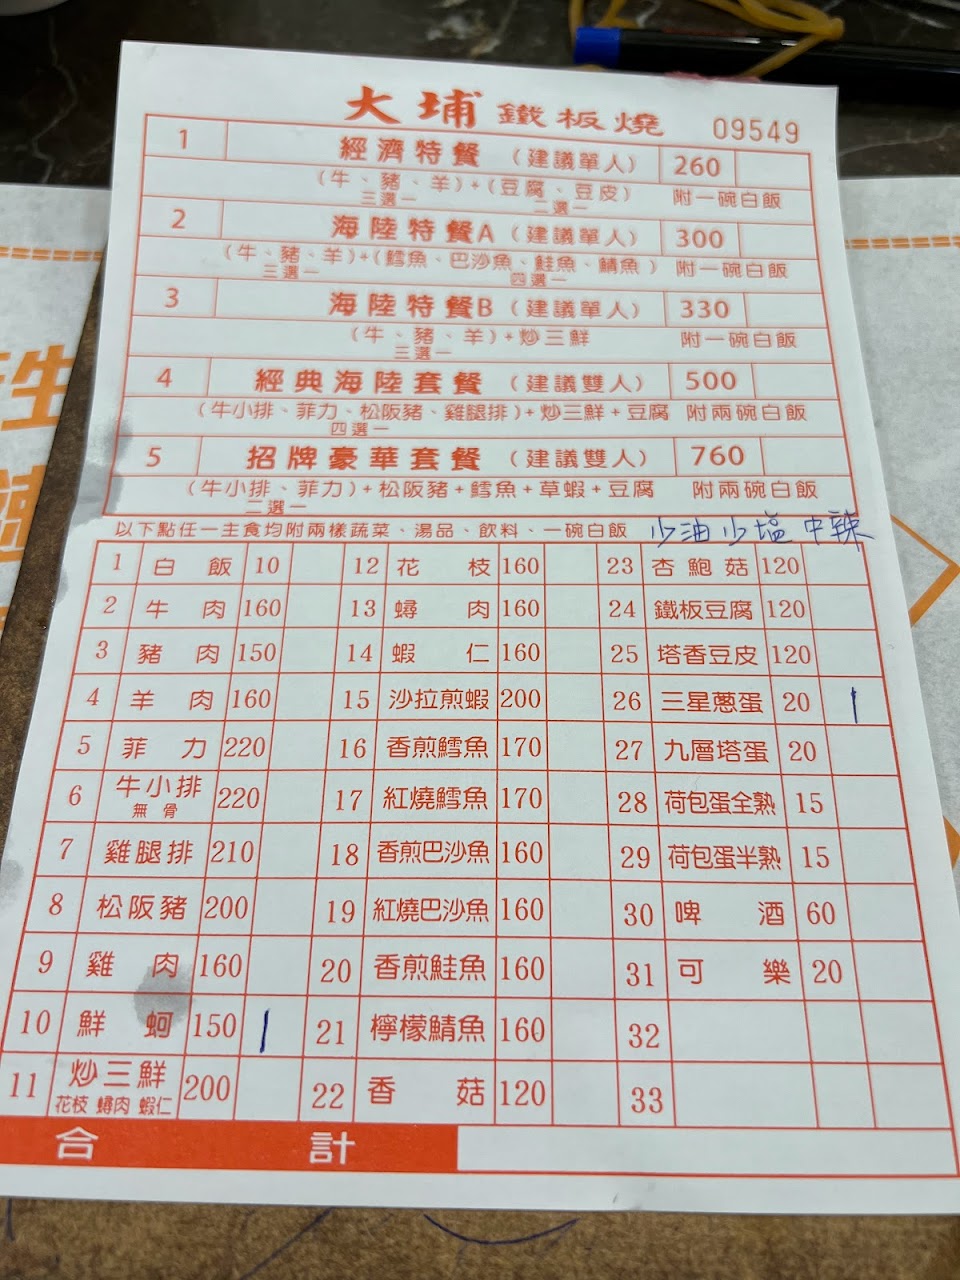 大埔 鐵板燒 09549
1 經濟特餐 (建議單人) 260
(牛、豬、羊)+(豆腐、豆皮) 附一碗白飯
三選一 二選一
2 海陸特餐A (建議單人) 300
(牛、豬、羊)+(鱈魚、巴沙魚、鮭魚、鯖魚) 附一碗白飯
三選一 四選一
3 海陸特餐B (建議單人) 330
(牛、豬、羊)+炒三鮮 附一碗白飯
三選一
4 經典海陸套餐 (建議雙人) 500
(牛小排、菲力、松阪豬、雞腿排)+炒三鮮+豆腐 附兩碗白飯
四選一
5 招牌豪華套餐 (建議雙人) 760
(牛小排、菲力)+松阪豬+鱈魚+草蝦+豆腐 附兩碗白飯
二選一
以下點任一主食均附兩樣蔬菜、湯品、飲料、一碗白飯 少油 少塩 中辣
1 白飯 10 12 花枝 160 23 杏鮑菇 120
2 牛肉 160 13 蟳肉 160 24 鐵板豆腐 120
3 豬肉 150 14 蝦仁 160 25 塔香豆皮 120
4 羊肉 160 15 沙拉煎蝦 200 26 三星蔥蛋 20 1
5 菲力 220 16 香煎鱈魚 170 27 九層塔蛋 20
6 牛小排 無骨 220 17 紅燒鱈魚 170 28 荷包蛋全熟 15
7 雞腿排 210 18 香煎巴沙魚 160 29 荷包蛋半熟 15
8 松阪豬 200 19 紅燒巴沙魚 160 30 啤酒 60
9 雞肉 160 20 香煎鮭魚 160 31 可樂 20
10 鮮蚵 150 1 21 檸檬鯖魚 160 32
11 炒三鮮 花枝 蟳肉 蝦仁 200 22 香菇 120 33
合計
生